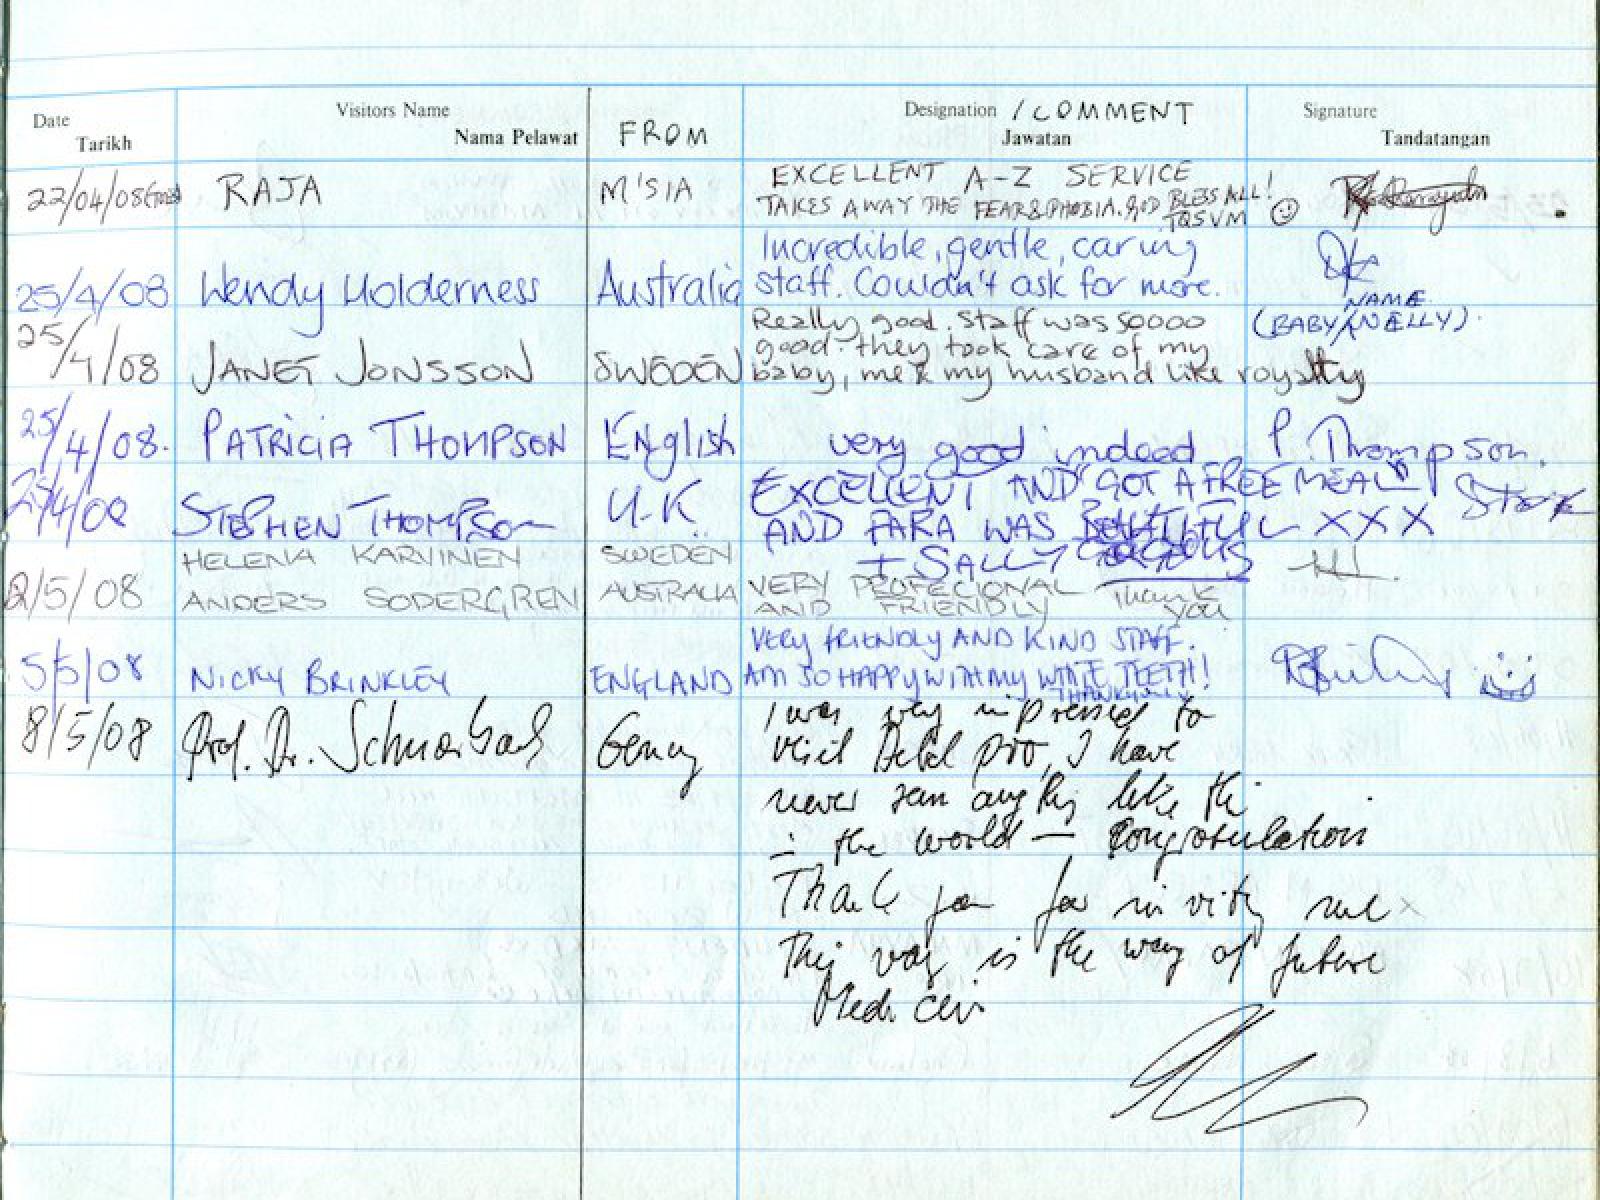 Date Visitors Name Designation / COMMENT Signature
Tarikh Nama Pelawat FROM Jawatan Tandatangan
22/04/08 RAJA M'SIA EXCELLENT A-Z SERVICE
TAKES AWAY THE FEAR & PHOBIA. GOD BLESS ALL!
TQSVM
25/4/08 Wendy Holderness Australia Incredible, gentle, caring
staff. Couldn't ask for more.
25/4/08 JANET JONSSON SWEDEN Really good. Staff was soooo
good. they took care of my
baby, me & my husband like royalty
NAME
(BABY NELLY).
25/4/08. PATRICIA THOMPSON English very good indeed P. Thompson.
25/4/08 STEPHEN THOMPSON U.K. EXCELLENT AND GOT A FREE MEAL
AND FARA WAS XXX
+ SALLY
HELENA KARVINEN SWEDEN
2/5/08 ANDERS SODERGREN AUSTRALIA VERY PROFECIONAL Thank
AND FRIENDLY you
5/5/08 NICKY BRINKLEY ENGLAND VERY FRIENDLY AND KIND STAFF.
AM SO HAPPY WITH MY WHITE TEETH!
8/5/08 Prof. Dr. I was very impressed to
visit pro, I have
never seen anything like this
in the world — Congratulation
Thank you for inviting me
This way is the way of future
Medicin